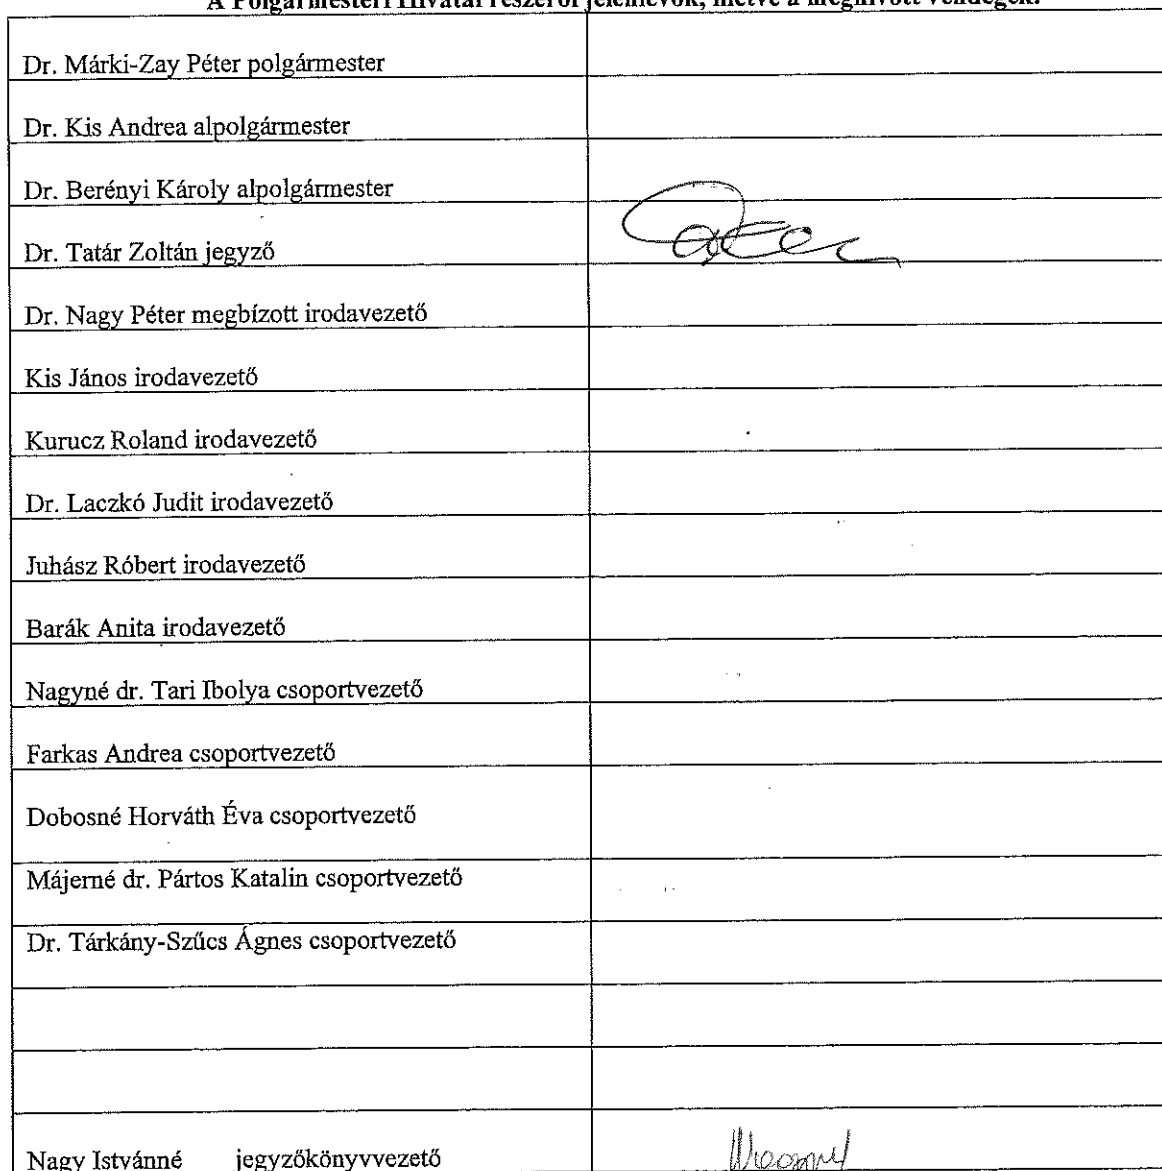 A Polgármesteri Hivatal részéről jelenlévők, illetve a meghívott vendégek:
Dr. Márki-Zay Péter polgármester
Dr. Kis Andrea alpolgármester
Dr. Berényi Károly alpolgármester
Dr. Tatár Zoltán jegyző
Dr. Nagy Péter megbízott irodavezető
Kis János irodavezető
Kurucz Roland irodavezető
Dr. Laczkó Judit irodavezető
Juhász Róbert irodavezető
Barák Anita irodavezető
Nagyné dr. Tari Ibolya csoportvezető
Farkas Andrea csoportvezető
Dobosné Horváth Éva csoportvezető
Májerné dr. Pártos Katalin csoportvezető
Dr. Tárkány-Szűcs Ágnes csoportvezető
Nagy Istvánné jegyzőkönyvvezető